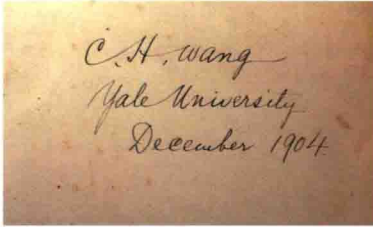 C. H. Wang
Yale University
December 1904